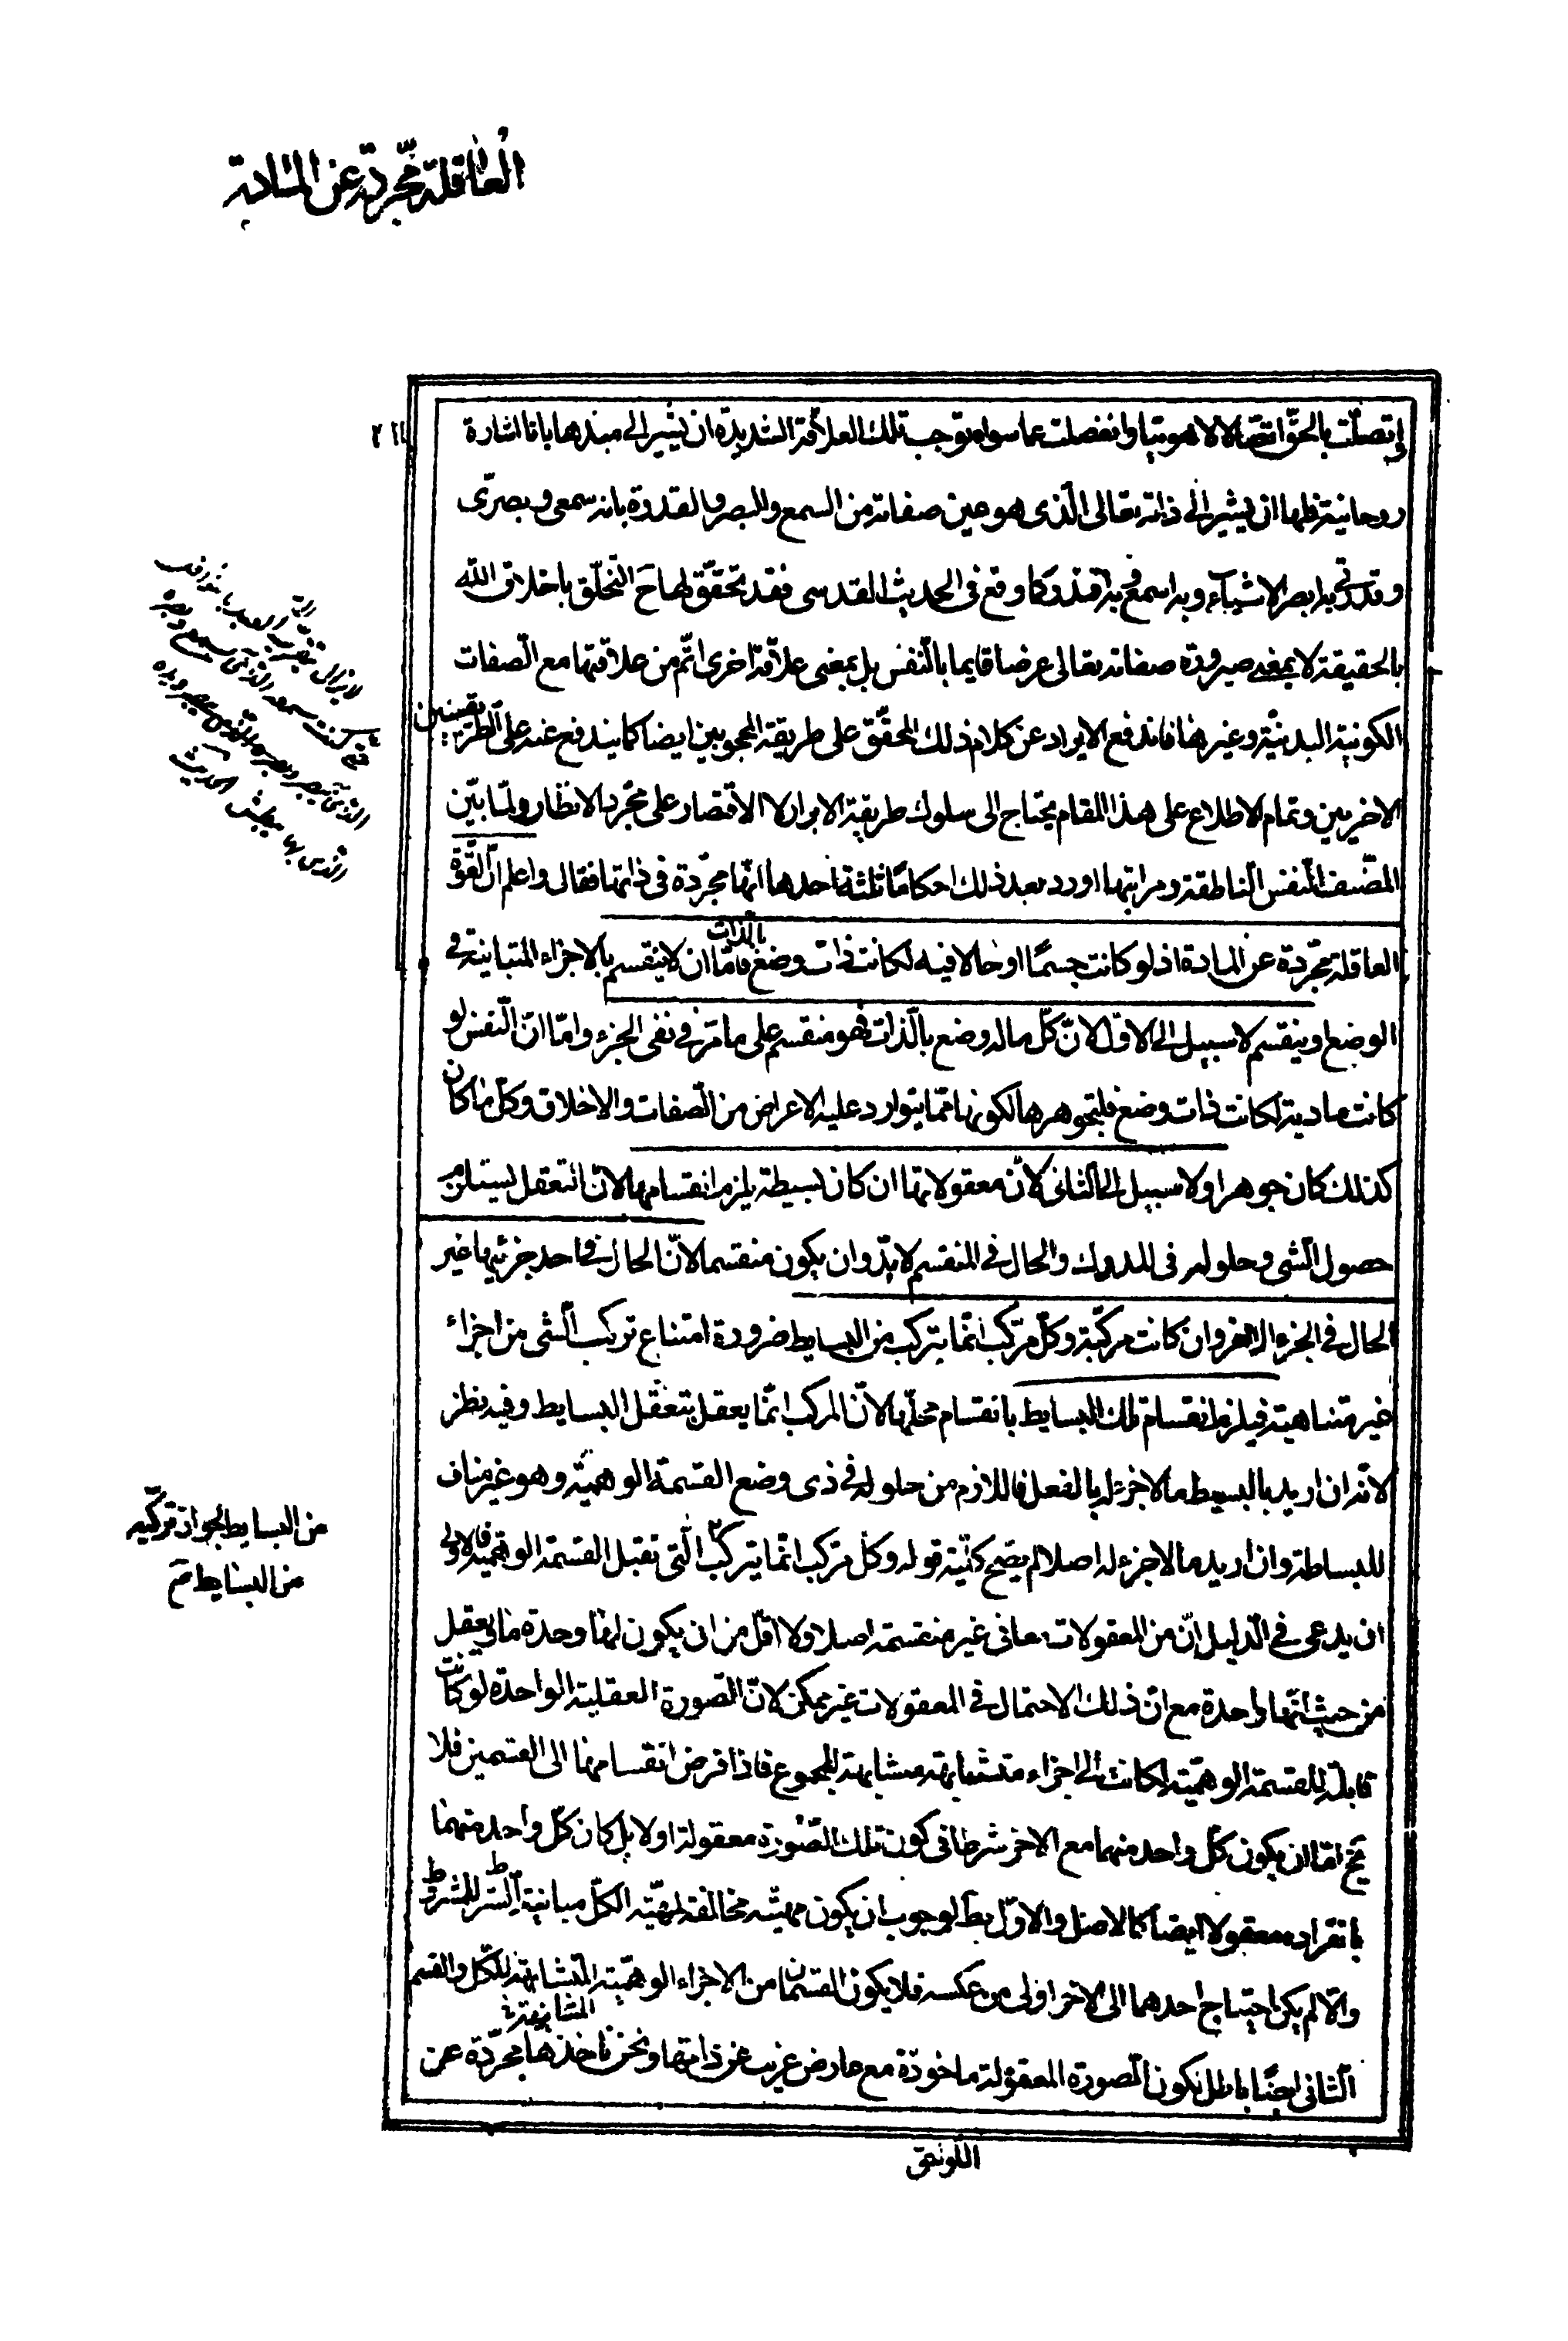 العاقلة مجردة عن المادة
٢١١
و اتصلت بالحق اتصالا لاهوتيا وانفصلت عما سواه توجب تلك العلاقة الشديدة ان يشير الى مبدئها بانا اشارة
روحانية فلها ان يشير الى ذاته تعالى الذى هو عين صفاته من السمع والبصر والقدرة بانه سمعى وبصرى
وقدرتى به ابصر الاشياء وبه اسمع وبه اقدر كما وقع فى الحديث القدسى فقد تحقق لها ح التخلق باخلاق الله
بالحقيقة لا بمعنى صيرورة صفاته تعالى عرضا قايما بالنفس بل بمعنى علاقة اخرى اتم من علاقتها مع الصفات
الكونية البدنية وغيرها فاندفع الايراد عن كلام ذلك المحقق على طريقة المحجوبين ايضا كما يندفع عنه على الطريقين
الاخريين وتمام الاطلاع على هذا المقام يحتاج الى سلوك طريقة الابرار لا الاقتصار على مجرد الانظار ولما بين
المصنف النفس الناطقة ومراتبها اورد بعد ذلك احكاما ثلثة احدها انها مجردة فى ذاتها فقال واعلم ان القوة
العاقلة مجردة عن المادة اذ لو كانت جسما او حالا فيه لكانت ذات وضع بالذات فاما ان لا ينقسم بالاجزاء المتباينة فى
الوضع او ينقسم لا سبيل الى الاول لان كل ما له وضع بالذات فهو منقسم على ما مر فى نفى الجزء واما ان النفس لو
كانت مادية لكانت ذات وضع فلتجوهرها لكونها مما يتوارد عليه الاعراض من الصفات والاخلاق وكل ما كان
كذلك كان جوهرا ولا سبيل الى الثانى لان معقولاتها ان كان بسيطة يلزم انقسامها لان التعقل يستلزم
حصول الشى وحلوله فى المدرك والحال فى المنقسم لابد وان يكون منقسما لان الحال فى احد جزئيها غير
الحال فى الجزء الاخر وان كانت مركبة وكل مركب انما يتركب من البسايط ضرورة امتناع تركب الشى من اجزاء
غير متناهية فيلزم انقسام تلك البسايط بانقسام محلها لان المركب انما يعقل بتعقل البسايط وفيه نظر
لانه ان اريد بالبسيط ما لا جزء له بالفعل فاللازم من حلوله فى ذى وضع القسمة الوهمية وهو غير مناف
للبساطة وان اريد ما لا جزء له اصلا لم يصح كلية قوله وكل مركب انما يتركب التى تقبل القسمة الوهمية فالاولى
من البسايط لجواز تركبه
من البسايط صح
ان يدعى فى الدليل ان من المعقولات معانى غير منقسمة اصلا ولا اقل من ان يكون لها وحدة ما يعقل
من حيث انها واحدة مع ان ذلك الاحتمال فى المعقولات غير ممكن لان الصورة العقلية الواحدة لو كانت
قابلة للقسمة الوهمية لكانت الى اجزاء متشابهة مشابهة للمجموع فاذا فرض انقسامها الى القسمين فلا
يخ اما ان يكون كل واحد منهما مع الاخر شرطا فى كون تلك الصورة معقولة او لا بل كان كل واحد منهما
بانفراده معقولا ايضا كالاصل والاول بط لوجوب ان يكون مهيته مخالفة لمهية الكل مباينة الشرط للمشروط
والا لم يكن احتياج احدهما الى الاخر اولى من عكسه فلا يكون القسمان من الاجزاء الوهمية المتشابهة للكل والقسم
الثانى ايضا باطل لكون الصورة المعقولة ماخوذة مع عارض غريب عن ذاتها ونحن ناخذها مجردة عن
اللواحق